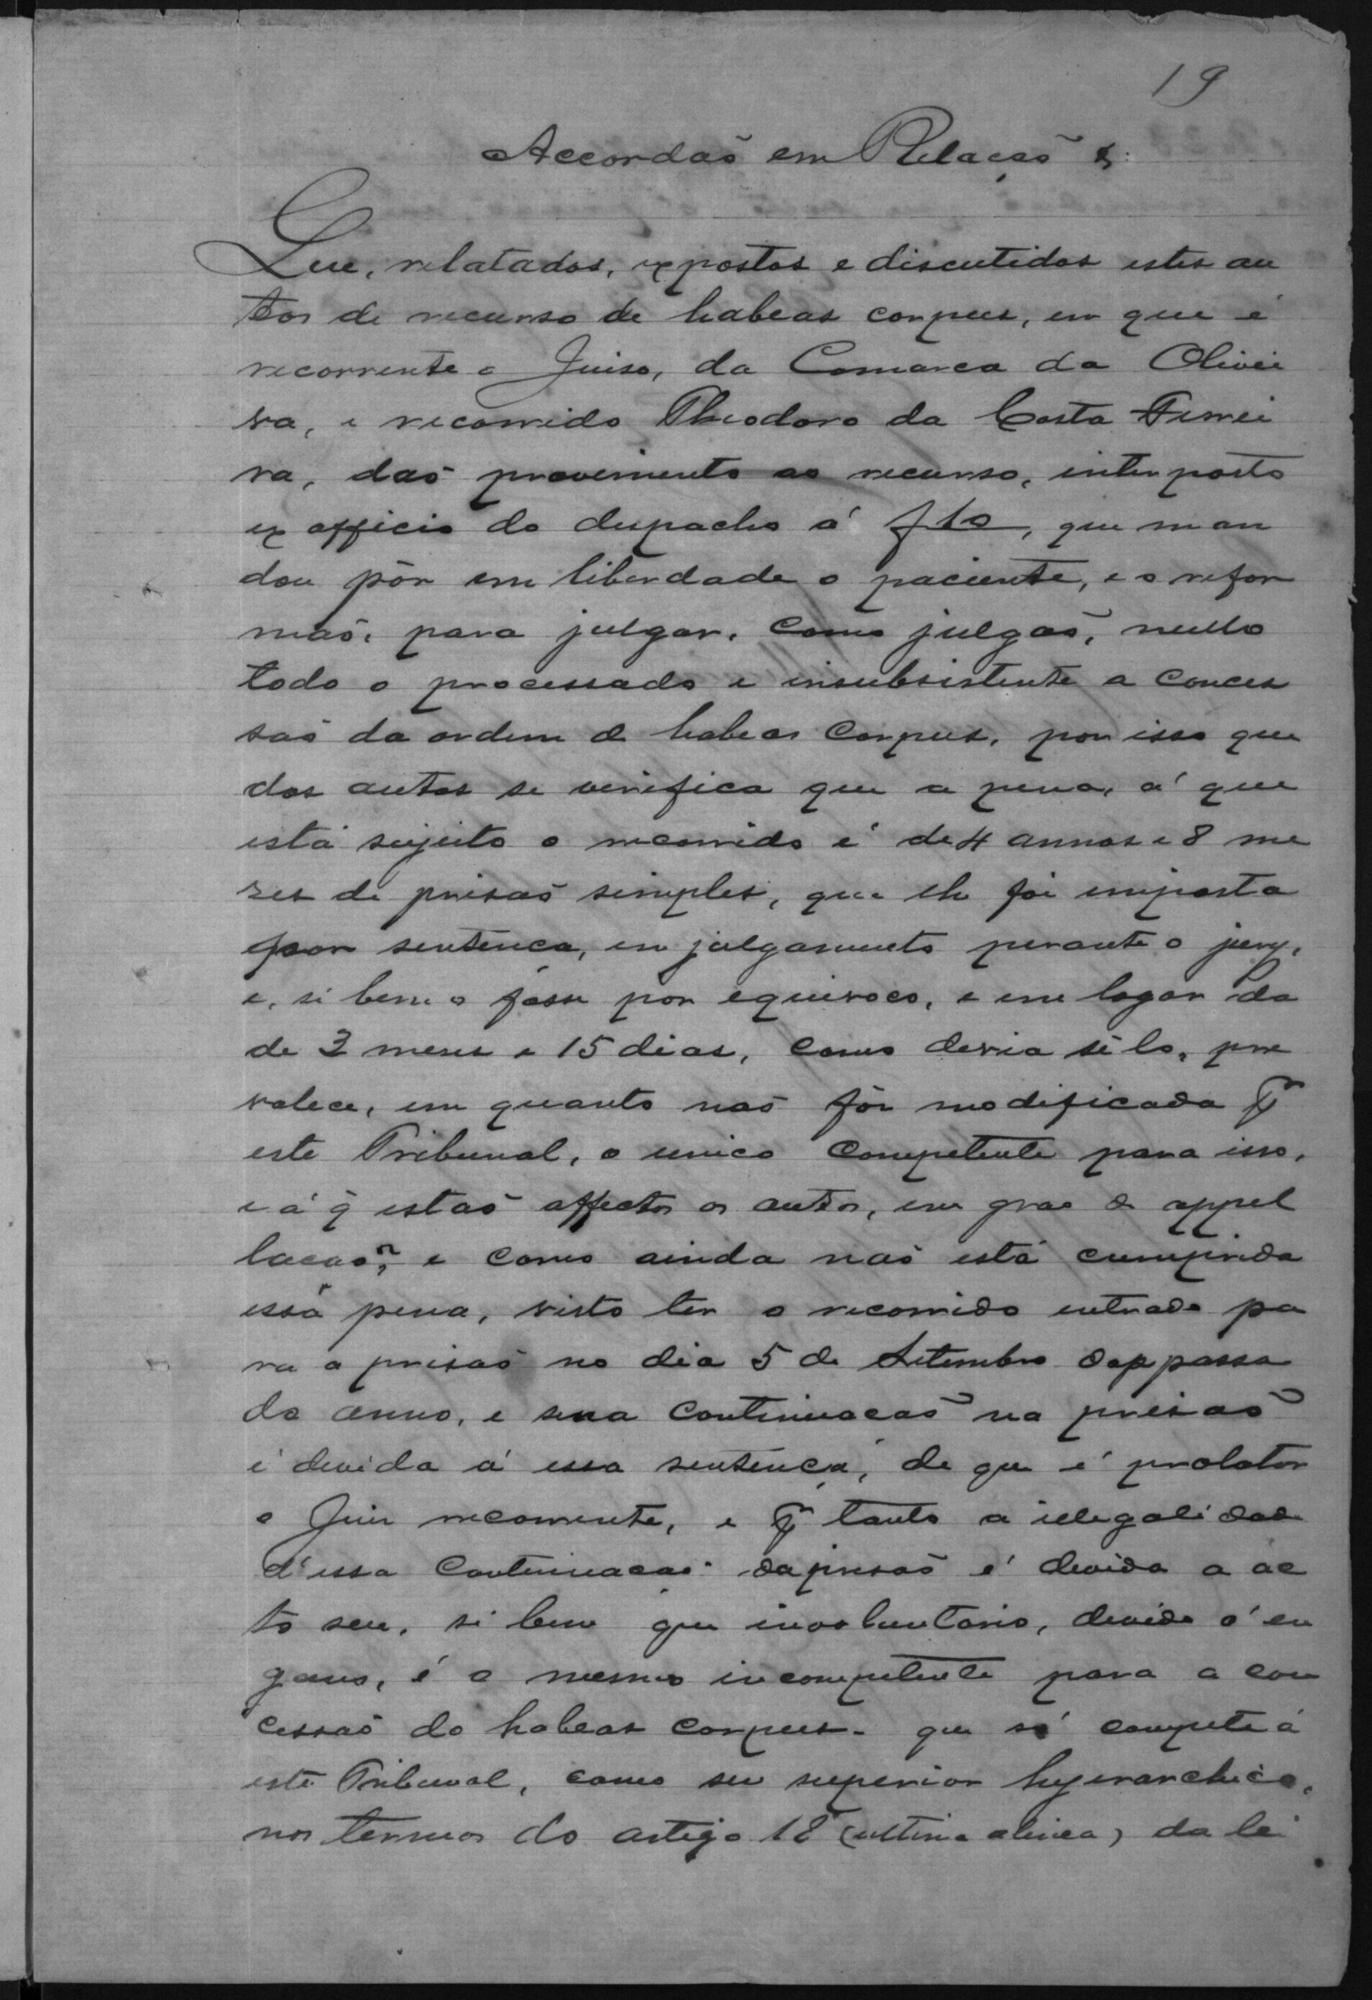 19
Accordaõ em Relaçaõ &:
Que, relatados, expostos e discutidos estes au
tos de recurso de habeas corpus, em que é
recorrente o Juiso, da Comarca da Olivei
ra, e recorrido Theodoro da Costa Ferrei
ra, daõ provimento ao recurso, interposto
ex officio do despacho á f, que man
dou pôr em liberdade o paciente, e o refor
maõ, para julgar, como julgaõ, nullo
todo o processado e insubsistente a conces
saõ da ordem de habeas corpus, por isso que
dos autos se verifica que a pena, á que
está sujeito o recorrido é de 4 annos e 8 me
zes de prisaõ simples, que lhe foi imposta
por sentença, em julgamento perante o jury,
e, si bem o fosse por equivoco, e em logar da
de 3 meses e 15 dias, como devia sêlo, pre
valece, em quanto naõ fôr modificada p
este Tribunal, o unico competente para isso,
e á q̃ estaõ affectos os autos, em grao de appel
laçaõ; e como ainda naõ está cumprida
essa pena, visto ter o recorrido entrado pa
ra a prisaõ no dia 5 de Setembro do passa
do anno, e sua continuaçaõ na prisaõ
é devida á essa sentença, de que é prolator
o Juiz recorrente, e p tanto a illegalidade
d'essa continuaçaõ da prisaõ é devida a ac
to seu, si bem que involuntario, devido á en
gano, é o mesmo incompetente para a con
cessaõ do habeas corpus - que só compete á
este Tribunal, como seu superior hyerarchico,
nos termos do artigo 18 (ultima alinea) da lei